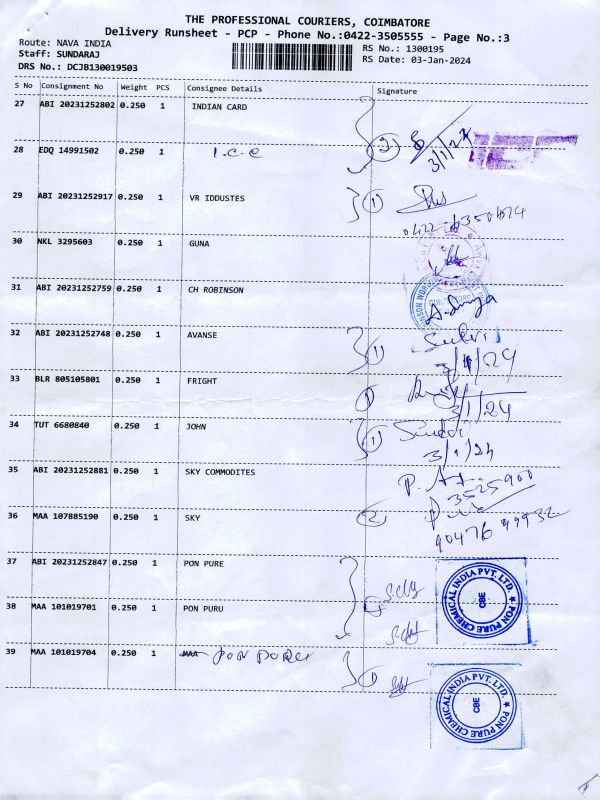 THE PROFESSIONAL COURIERS, COIMBATORE
Delivery Runsheet - PCP - Phone No.:0422-3505555 - Page No.:3
Route: NAVA INDIA
Staff: SUNDARAJ
RS No.: 1300195
DRS No.: DCJB130019503
RS Date: 03-Jan-2024
S No Consignment No Weight PCS Consignee Details Signature
27 ABI 20231252802 0.250 1 INDIAN CARD
28 EDQ 14991502 0.250 1 I.C.C 2 3/1/24
29 ABI 20231252917 0.250 1 VR IDDUSTES 1
30 NKL 3295603 0.250 1 GUNA
31 ABI 20231252759 0.250 1 CH ROBINSON
32 ABI 20231252748 0.250 1 AVANSE 1 Selvi
3/1/24
33 BLR 805105801 0.250 1 FRIGHT 1
3/1/24
34 TUT 6680840 0.250 1 JOHN 1
3/1/24
35 ABI 20231252881 0.250 1 SKY COMMODITES
3525900
36 MAA 107885190 0.250 1 SKY 2
90476 49932
37 ABI 20231252847 0.250 1 PON PURE
PON PURE CHEMICAL INDIA PVT. LTD.
CBE
38 MAA 101019701 0.250 1 PON PURU
39 MAA 101019704 0.250 1 MAA PON PURE 1
PON PURE CHEMICAL INDIA PVT. LTD.
CBE